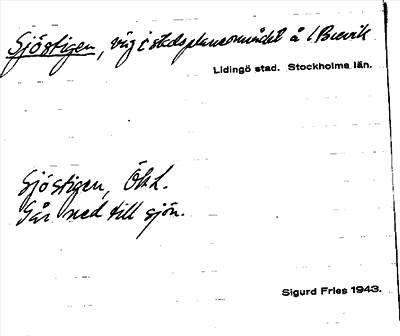 Sjöstigen, väg i stadsplaneområdet å L Brevik
Lidingö stad. Stockholms län.
Sjöstigen, Ökl.
Går ned till sjön.
Sigurd Fries 1943.